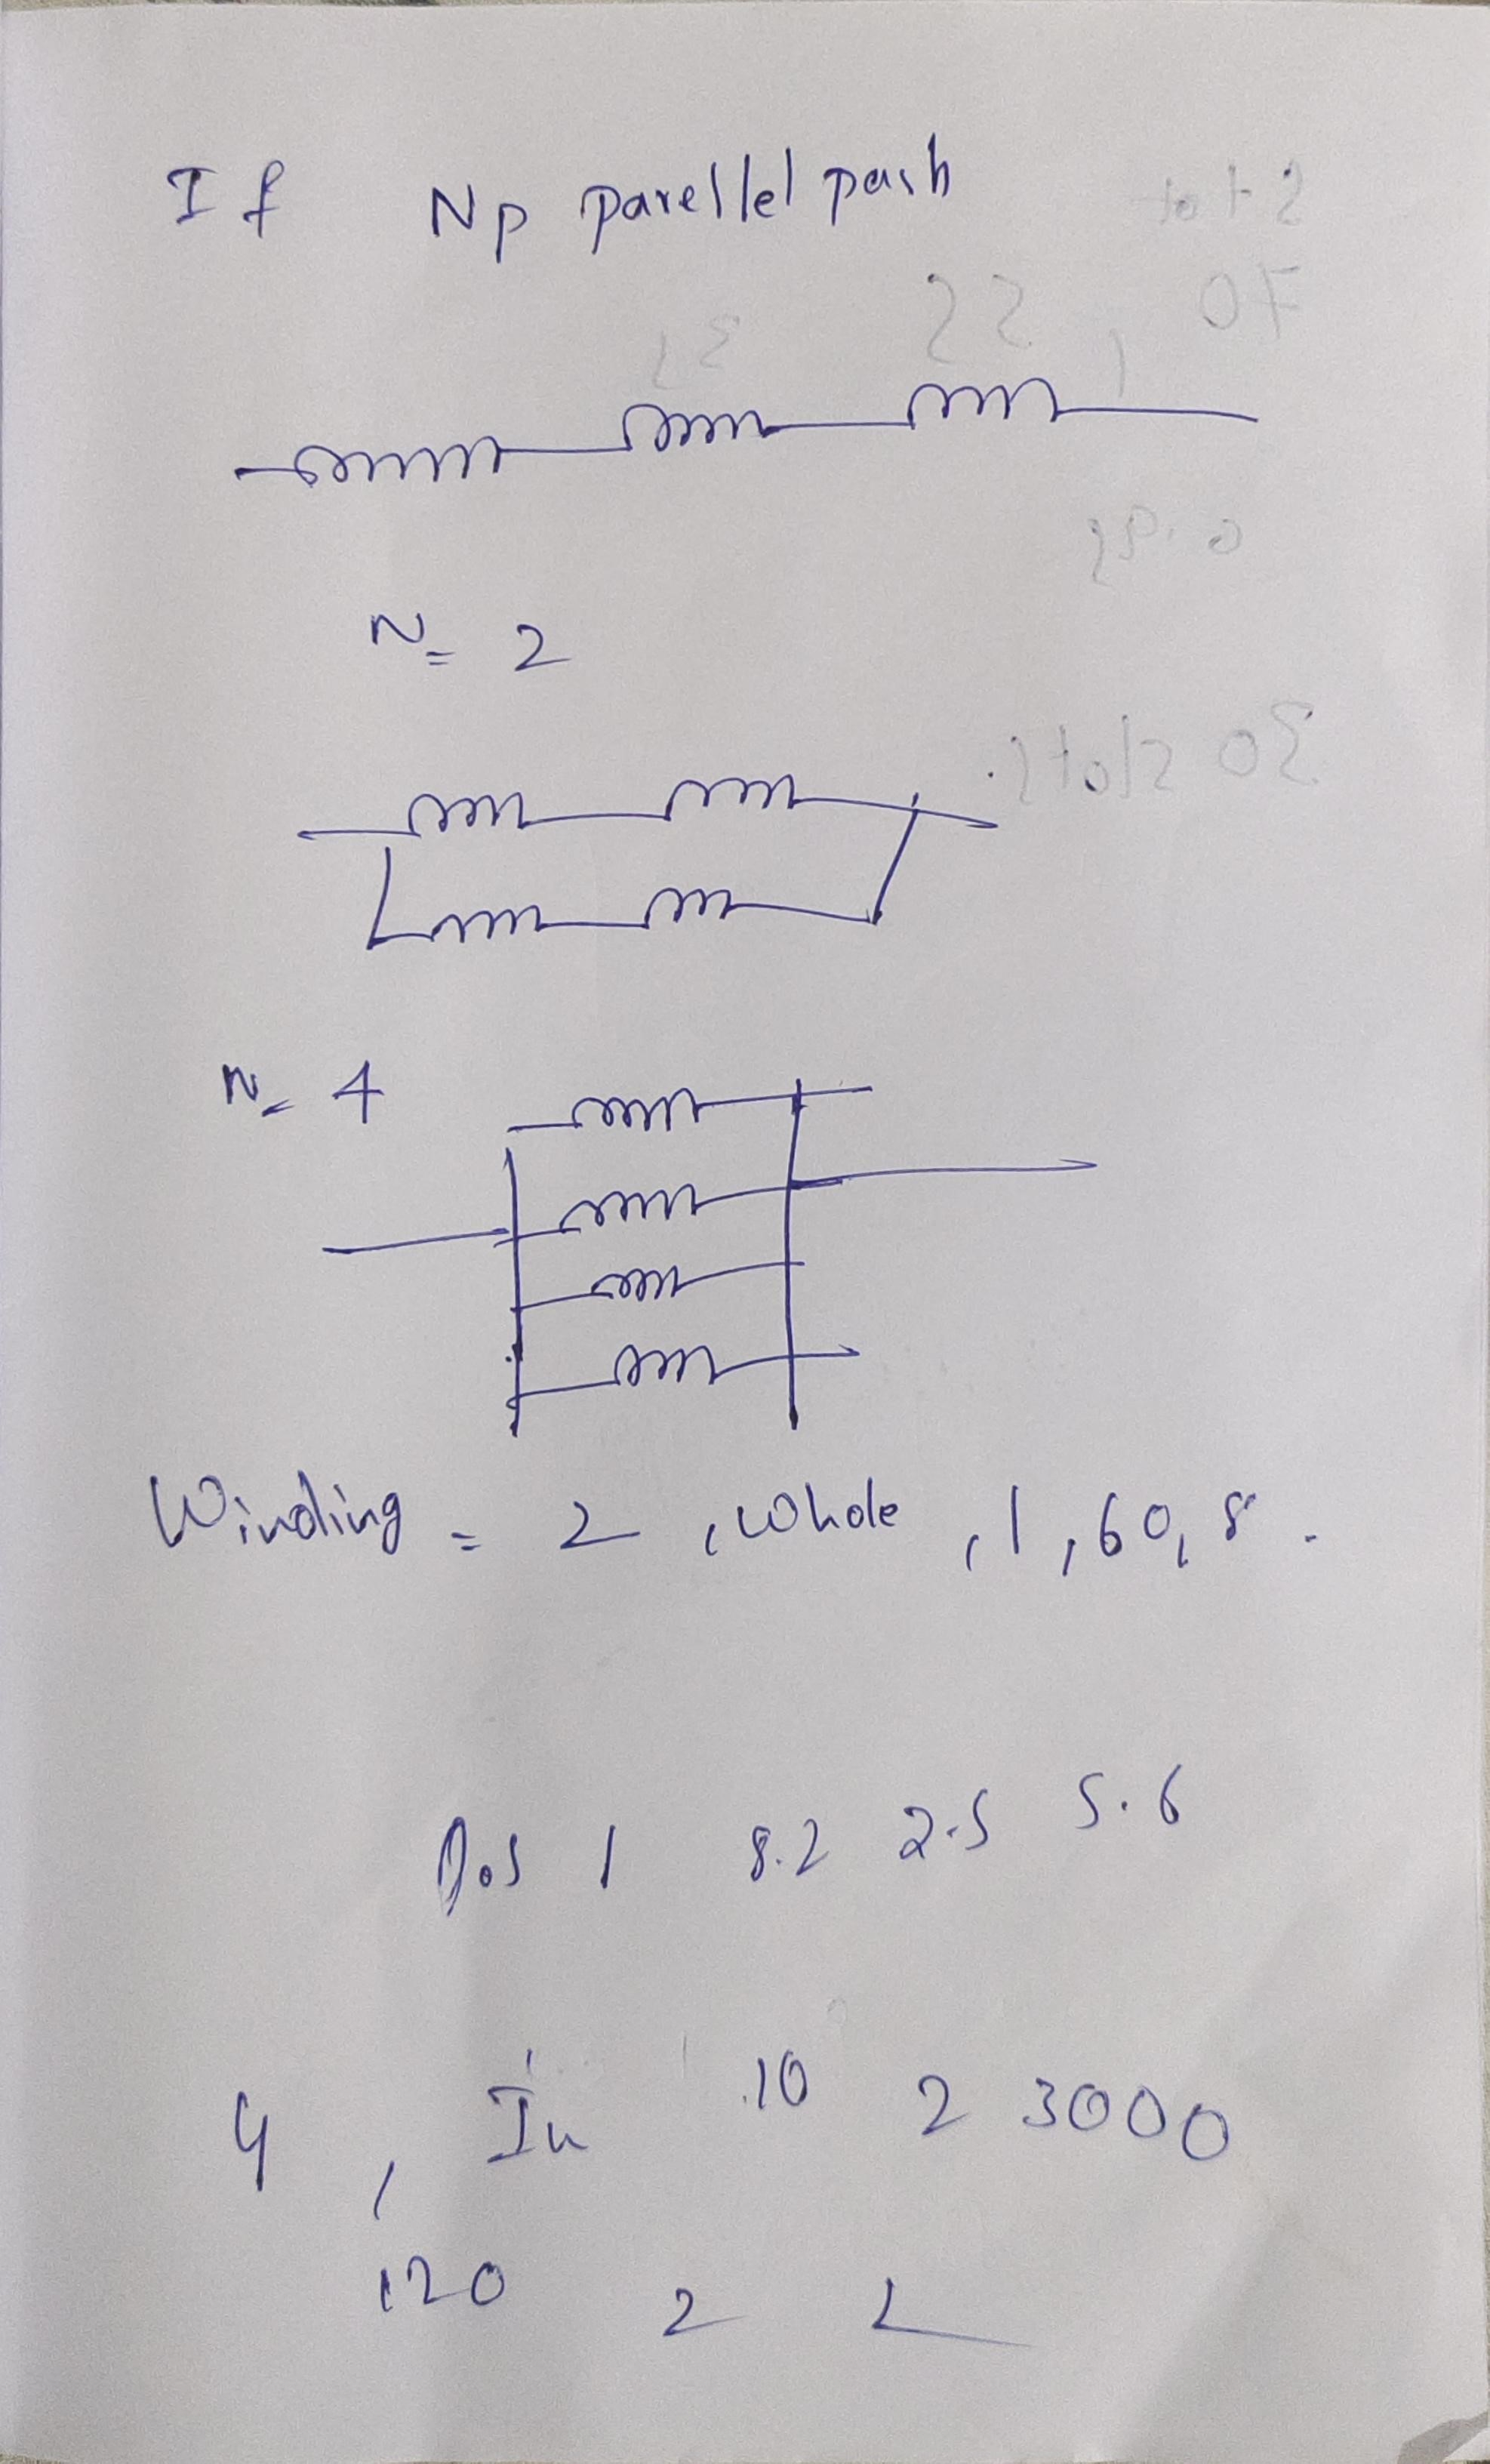 If Np parellel path
N= 2
N= 4
Winding = 2, whole, 1, 60, 8.
1 8.2 2.5 5.6
4, In 10 2 3000
120 2